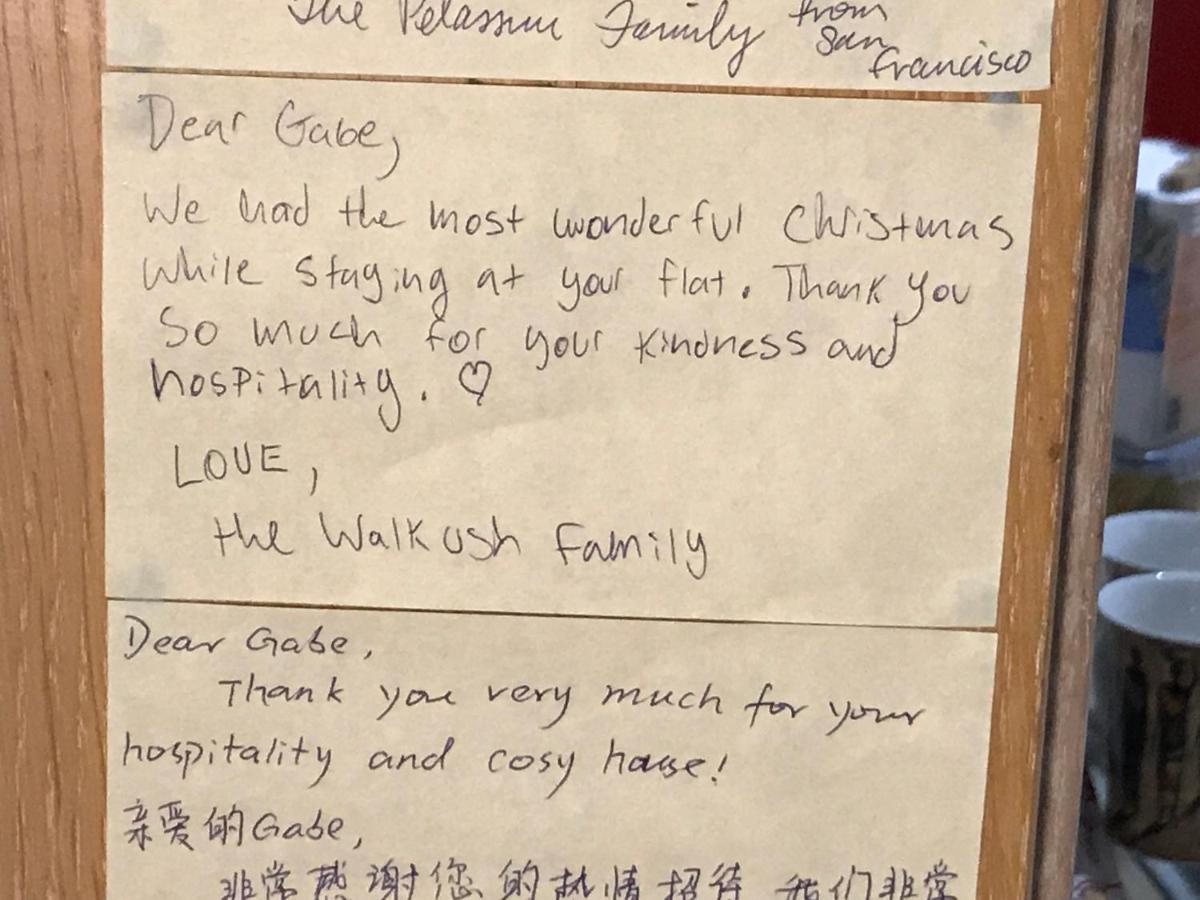 The Pelassine Family from
San
Francisco
Dear Gabe,
We had the most wonderful Christmas
while staying at your flat. Thank you
so much for your kindness and
hospitality. ♡
LOVE,
the Walkush Family
Dear Gabe,
Thank you very much for your
hospitality and cosy house!
亲爱的Gabe,
非常感谢您的热情招待 我们非常